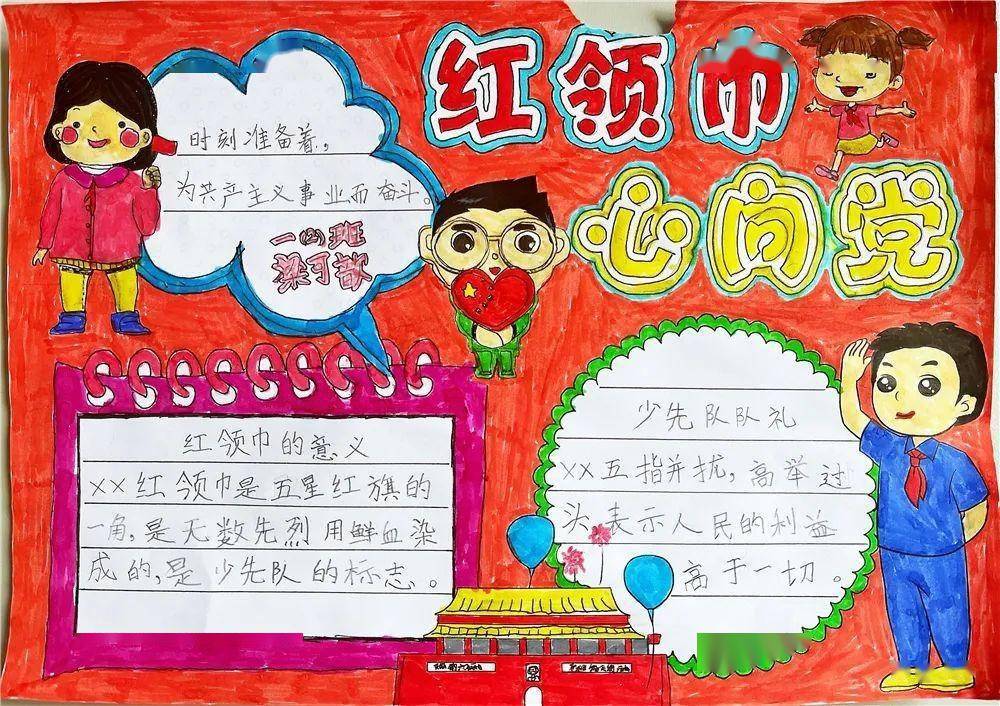 红领巾
心向党
时刻准备着，
为共产主义事业而奋斗。
一（2）班
梁可歆
红领巾的意义
××红领巾是五星红旗的
一角，是无数先烈用鲜血染
成的，是少先队的标志。
少先队队礼
××五指并拢，高举过
头，表示人民的利益
高于一切。